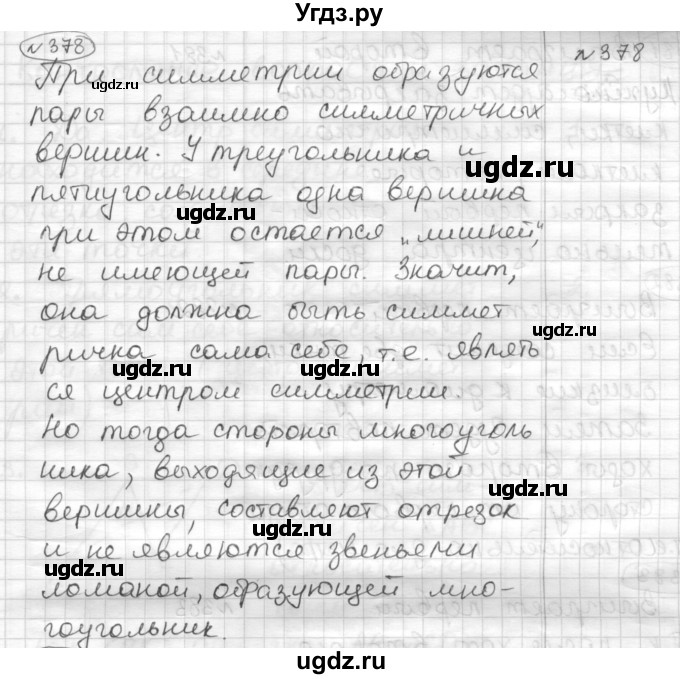 Угдз.ру
№378 №378
При симметрии образуются
ugdz.ru
пары взаимно симметричных
вершин. У треугольника и
ugdz.ru
пятиугольника одна вершина
ugdz.ru
при этом остается „лишней",
не имеющей пары. Значит,
ugdz.ru
она должна быть симмет
ugdz.ru
рична сама себе, т.е. являть
ugdz.ru ugdz.ru
ся центром симметрии.
Но тогда стороны многоуголь
ника, выходящие из этой
ugdz.ru
вершины, составляют отрезок
ugdz.ru
и не являются звеньями
ugdz.ru
ломаной, образующей мно-
ugdz.ru
гоугольник.
ugdz.ru
ugdz.ru